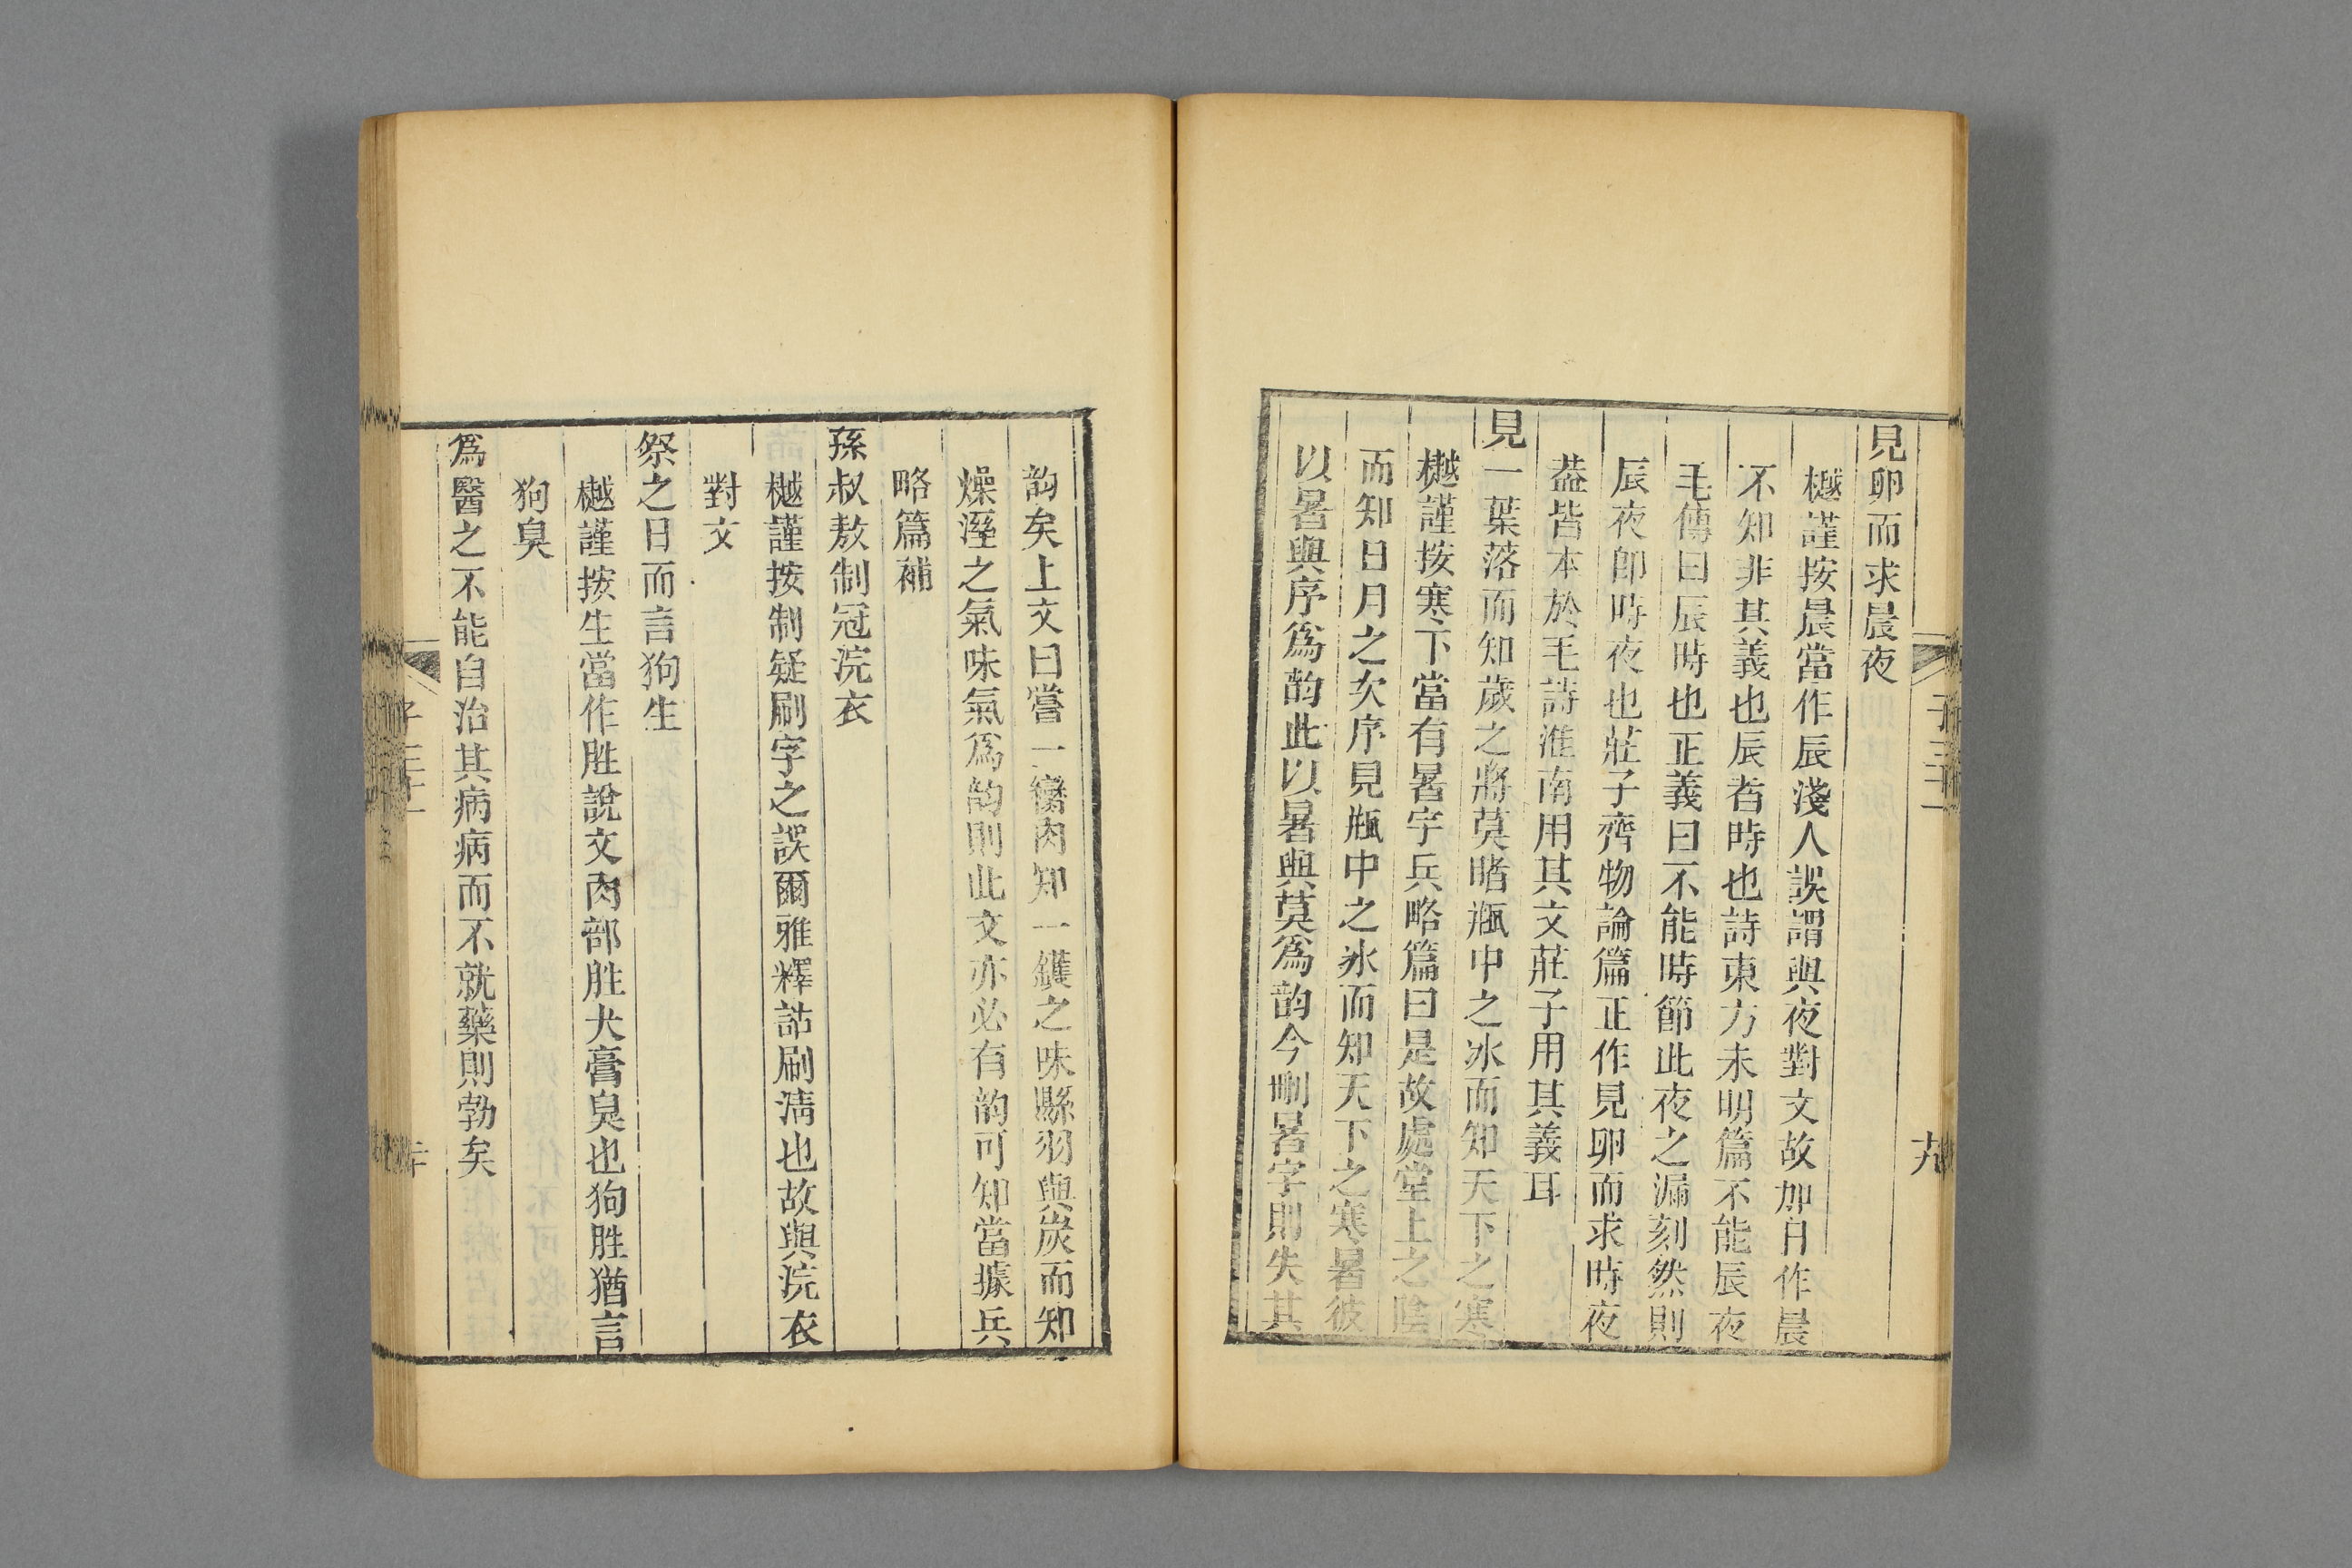 見卵而求晨夜
樾謹按晨當作辰淺人誤謂與夜對文故加日作晨
不知非其義也辰者時也詩東方未明篇不能辰夜
毛傳曰辰時也正義曰不能時節此夜之漏刻然則
辰夜卽時夜也莊子齊物論篇正作見卵而求時夜
葢皆本於毛詩淮南用其文莊子用其義耳
見一葉落而知歲之將莫睹瓶中之冰而知天下之寒
樾謹按寒下當有暑字兵略篇曰是故處堂上之陰
而知日月之次序見瓶中之冰而知天下之寒暑彼
以暑與序爲韵此以暑與莫爲韵今刪暑字則失其
韵矣上文曰嘗一臠肉知一鑊之味縣羽與炭而知
燥溼之氣味氣爲韵則此文亦必有韵可知當據兵
略篇補
孫叔敖制冠浣衣
樾謹按制疑刷字之誤爾雅釋詁刷淸也故與浣衣
對文
祭之日而言狗生
樾謹按生當作胜說文肉部胜犬膏臭也狗胜猶言
狗臭
爲醫之不能自治其病病而不就藥則勃矣